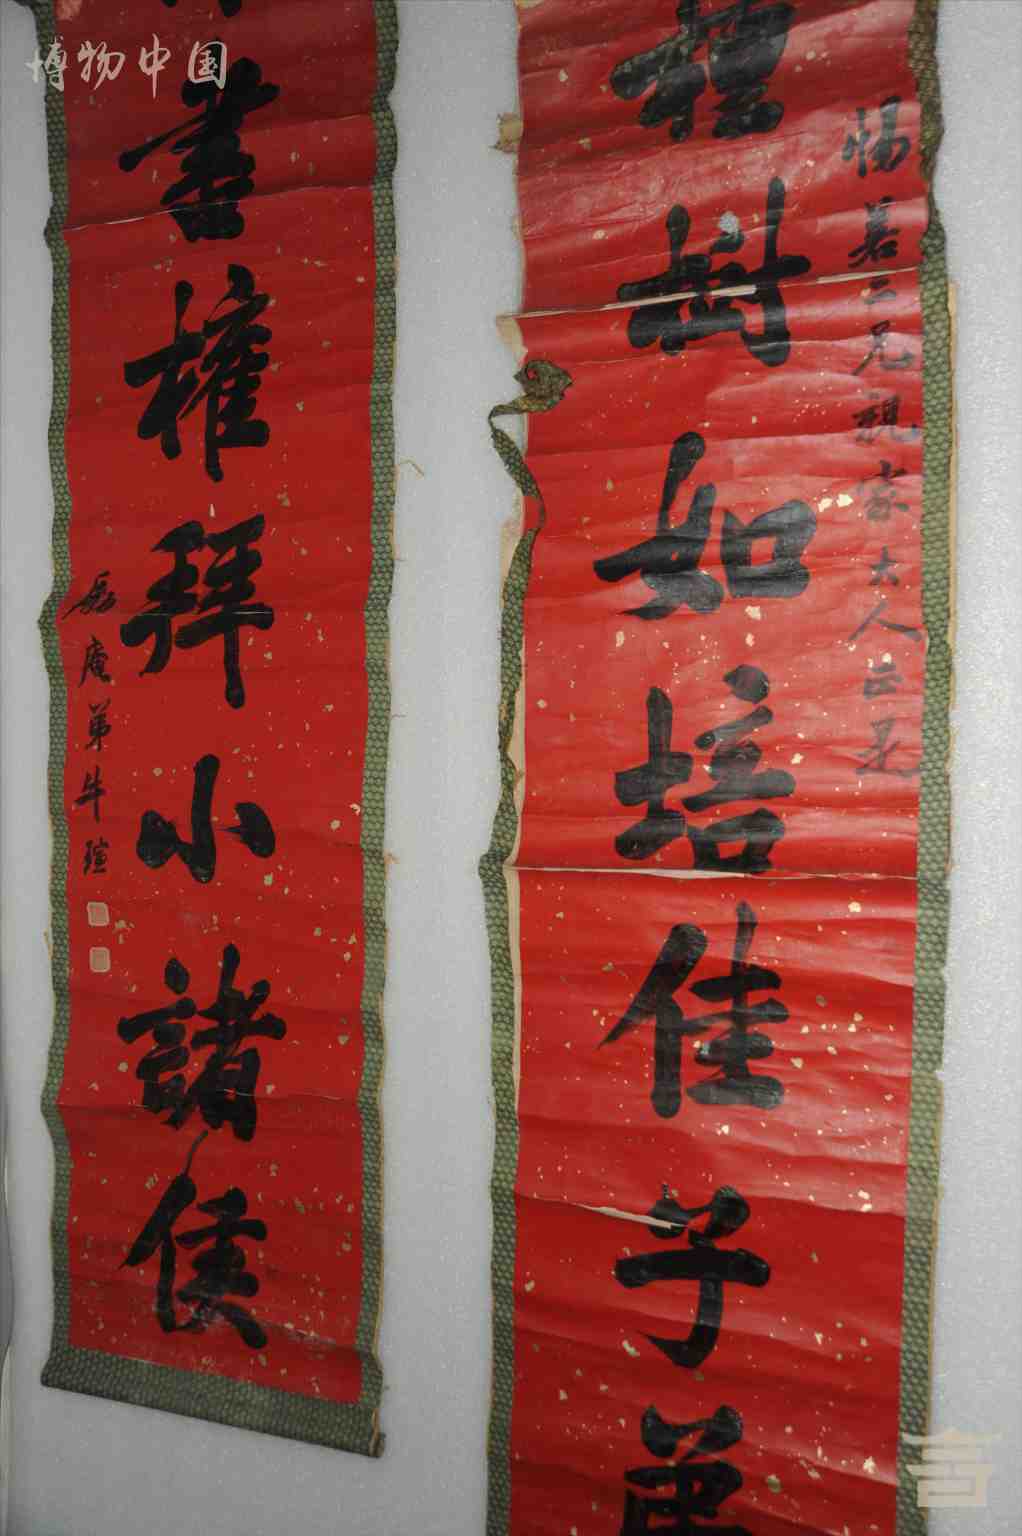 惕若二兄親家大人正是
種樹如培佳子弟
書權拜小諸侯
庵弟牛瑄
博物中国